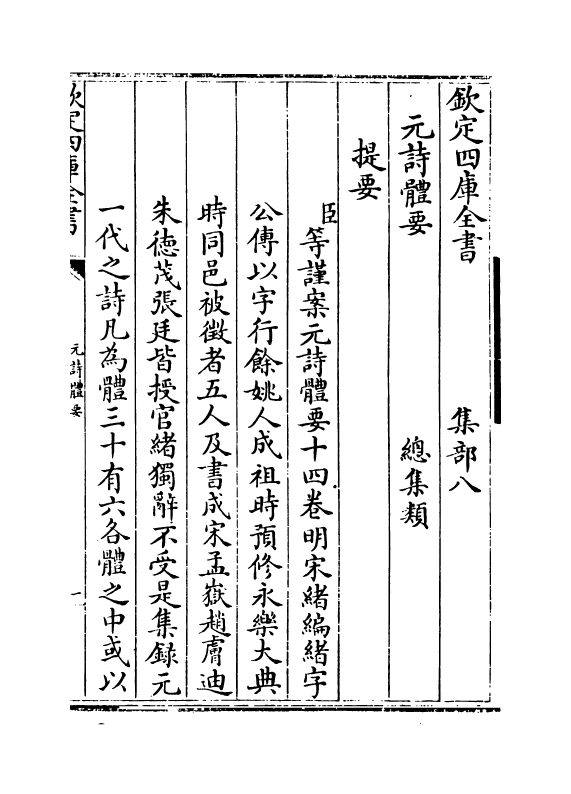 欽定四庫全書　集部八
元詩體要　總集類
提要
臣等謹案元詩體要十四卷明宋緒編緒字
公傳以字行餘姚人成祖時預修永樂大典
時同邑被徵者五人及書成宋孟嶽趙膚迪
朱德茂張廷皆授官緒獨辭不受是集錄元
一代之詩凡為體三十有六各體之中或以
欽定四庫全書
元詩體要
一